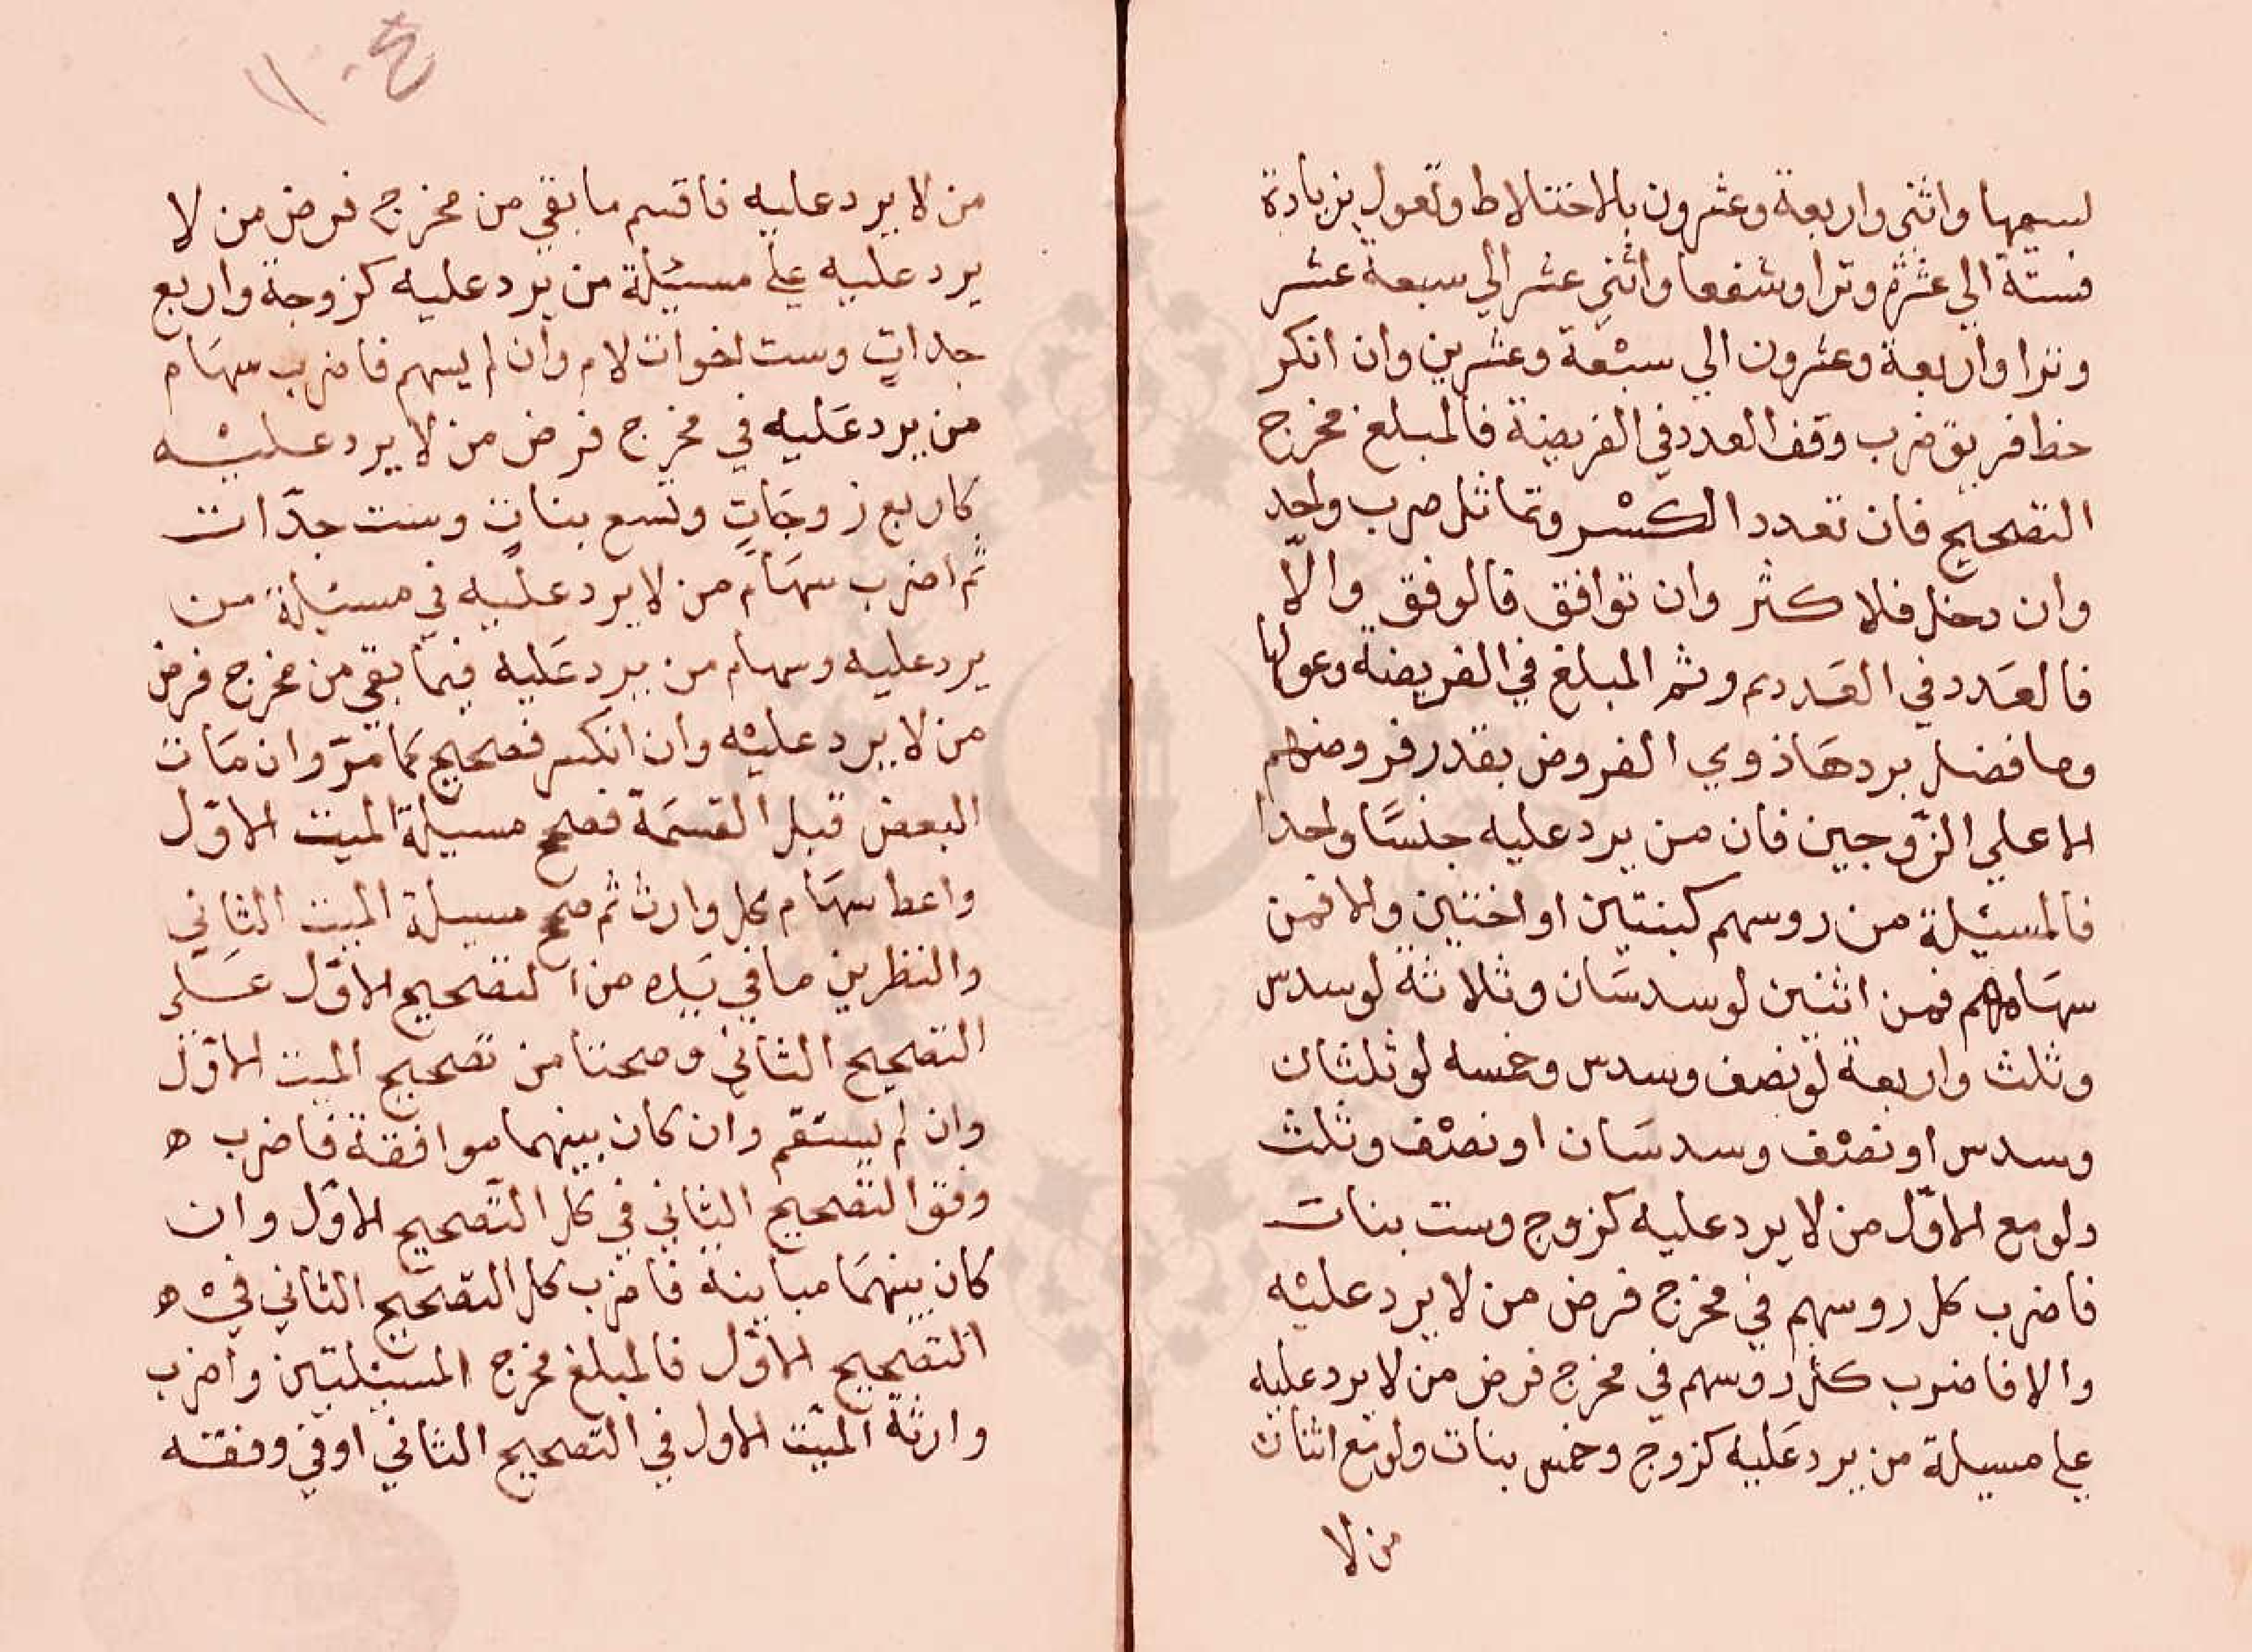 لسميها واثني واربعة وعشرون بالاختلاط وتعول بزيادة
فستة الي عشرة وترا وشفعا واثني عشر الي سبعة عشر
وترا واربعة وعشرون الي سبعة وعشرين وان انكر
حظ فريق ضرب وفق العدد في الفريضة فالمبلغ مخرج
التصحيح فان تعدد الكسر وتماثل ضرب واحد
وان دخل فلاكثر وان توافق فالوفق والّا
فالعدد في العدد ثم وثم المبلغ في الفريضة وعولها
وما فضل يردها ذوي الفروض بقدر فروضهم
الا علي الزّوجين فان من يرد عليه جنسًا واحدا
فالمسئلة من روسهم كبنتين او اختين والا فمن
سهامهم فمن اثنين لو سدسان وثلاثة لو سدس
وثلث واربعة لو نصف وسدس وخمسه لو ثلثان
وسدس او نصف وسدسان او نصف وثلث
ولو مع الاوّل من لا يرد عليه كزوج وست بنات
فاضرب كل روسهم في مخرج فرض من لا يرد عليه
والا فاضرب كل روسهم في مخرج فرض من لا يرد عليه
علي مسيلة من يرد عليه كزوج وخمس بنات ولو مع اثنان
من لا
١٠٤
من لا يرد عليه فاقسم ما بقي من مخرج فرض من لا
يرد عليه علي مسئيلة من يرد عليه كزوجة واربع
جداتٍ وست اخوات لام وان لم يسهم فاضرب سهام
من يرد عليه في مخرج فرض من لا يرد عليه
كاربع زوجاتٍ وتسع بناتٍ وست جدّات
ثم اضرب سهام من لا يرد عليه في مسئلة من
يرد عليه وسهام من يرد عليه فيما بقي من مخرج فرض
من لا يرد عليه وان انكسر فصحيح كما مرّ وان مات
البعض قبل القسمة فصحح مسيلة الميت الاوّل
واعط سهام كل وارث ثم صحح مسيلة الميت الثاني
والنظر بين ما في يده من التصحيح الاوّل علي
التصحيح الثاني وصحتا من تصحيح الميت الاوّل
وان لم يستقم وان كان بينهما موافقة فاضرب ه
وفق التصحيح الثاني في كل التصحيح الاوّل وان
كان بينهما مباينة فاضرب كل التصحيح الثاني في ه
التصحيح الاوّل فالمبلغ مخرج المسئيلتين واضرب
وارثة الميّت الاول في التصحيح الثاني او في وفقه